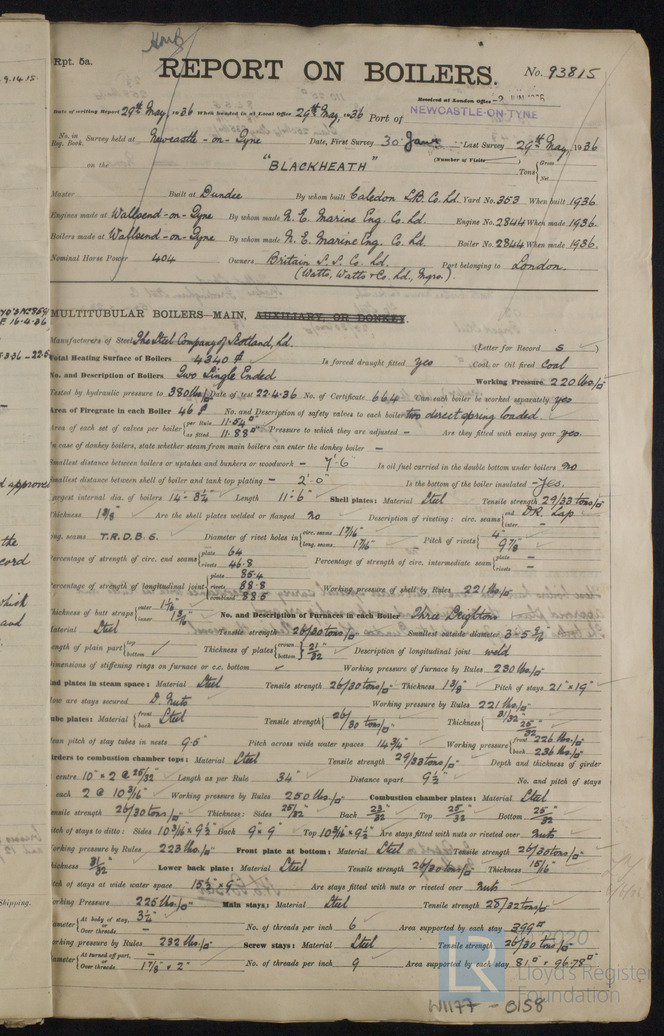 Rpt. 5a.
REPORT ON BOILERS.
No. 93815
Received at London Office
Date of writing Report 29th May 1936 When handed in at Local Office 29th May 1936 Port of NEWCASTLE-ON-TYNE
No. in Reg. Book. Survey held at Newcastle-on-Tyne Date, First Survey 30 Last Survey 29th May, 1936
on the "BLACKHEATH" (Number of Visits) Tons { Gross Net
Master Built at Dundee By whom built Caledon S.B. Co. Ld. Yard No. 353 When built 1936.
Engines made at Wallsend-on-Tyne By whom made N. E. Marine Eng. Co. Ld. Engine No. 2844 When made 1936.
Boilers made at Wallsend-on-Tyne By whom made N. E. Marine Eng. Co. Ld. Boiler No. 2844 When made 1936.
Nominal Horse Power 404 Owners Britain S.S. Co. Ld. Port belonging to London.
(Watts, Watts & Co. Ld., Mgrs.)
MULTITUBULAR BOILERS—MAIN, AUXILIARY OR DONKEY.
Manufacturers of Steel The Steel Company of Scotland, Ld. (Letter for Record S )
Total Heating Surface of Boilers 4340 Is forced draught fitted yes Coal or Oil fired Coal
No. and Description of Boilers Two Single Ended Working Pressure 220 lbs/□"
Tested by hydraulic pressure to 380 lbs/□" Date of test 22.4.36 No. of Certificate 664 Can each boiler be worked separately yes
Area of Firegrate in each Boiler 46 No. and Description of safety valves to each boiler two direct spring loaded
Area of each set of valves per boiler { per Rule 11.54 □" as fitted 11.88 □" Pressure to which they are adjusted – Are they fitted with easing gear yes.
In case of donkey boilers, state whether steam from main boilers can enter the donkey boiler –
Smallest distance between boilers or uptakes and bunkers or woodwork – 7'-6" Is oil fuel carried in the double bottom under boilers No
Smallest distance between shell of boiler and tank top plating – 2'-0" Is the bottom of the boiler insulated – Yes.
Largest internal dia. of boilers 14'-3¼" Length 11'-6" Shell plates: Material Steel Tensile strength 29/33 tons/□"
Thickness Are the shell plates welded or flanged No Description of riveting: circ. seams { end D.R. Lap inter. –
long. seams T.R.D.B.S. Diameter of rivet holes in { circ. seams 1 7/16" long. seams 1 7/16" Pitch of rivets { 4" 9 7/8"
Percentage of strength of circ. end seams { plate 64 rivets 46.8 Percentage of strength of circ. intermediate seam { plate – rivets –
Percentage of strength of longitudinal joint { plate 85.4 rivets 88.8 combined 88.5 Working pressure of shell by Rules 221 lbs/□"
Thickness of butt straps { outer inner No. and Description of Furnaces in each Boiler Three Deightons
Material Steel Tensile strength 26/30 tons/□" Smallest outside diameter
Length of plain part { top bottom Thickness of plates { crown bottom } 21/32" Description of longitudinal joint weld
Dimensions of stiffening rings on furnace or c.c. bottom Working pressure of furnace by Rules 230 lbs/□"
End plates in steam space: Material Steel Tensile strength 26/30 tons/□" Thickness 1 3/8" Pitch of stays 21" × 19"
How are stays secured D. Nuts Working pressure by Rules 221 lbs/□"
Tube plates: Material { front back Steel Tensile strength { 26/30 tons/□" Thickness { 31/32" 25/32"
Mean pitch of stay tubes in nests 9.5" Pitch across wide water spaces 14¾" Working pressure { front 226 lbs/□" back 236 lbs/□"
Girders to combustion chamber tops: Material Steel Tensile strength 29/33 tons/□" Depth and thickness of girder
at centre 10" × 2 @ 25/32" Length as per Rule 34" Distance apart 9½" No. and pitch of stays
in each 2 @ 10 3/16" Working pressure by Rules 250 lbs/□" Combustion chamber plates: Material Steel
Tensile strength 26/30 tons/□" Thickness: Sides 25/32" Back 23/32" Top 25/32" Bottom 25/32"
Pitch of stays to ditto: Sides 10 3/16" × 9½" Back 9" × 9" Top 10 3/16" × 9½" Are stays fitted with nuts or riveted over nuts
Working pressure by Rules 223 lbs/□" Front plate at bottom: Material Steel Tensile strength 26/30 tons/□"
Thickness 31/32" Lower back plate: Material Steel Tensile strength 26/30 tons/□" Thickness 15/16"
Pitch of stays at wide water space Are stays fitted with nuts or riveted over nuts
Working Pressure 225 lbs/□" Main stays: Material Steel Tensile strength 28/32 tons/□"
Diameter { At body of stay, 3¼" or Over threads – No. of threads per inch 6 Area supported by each stay 399 □"
Working pressure by Rules 232 lbs/□" Screw stays: Material Steel Tensile strength 26/30 tons/□"
Diameter { At turned off part, – or Over threads 1 7/8" & 2" No. of threads per inch 9 Area supported by each stay 81 □" & 96.78 □"
W1177 - 0158
© 2020
Lloyd's Register
Foundation